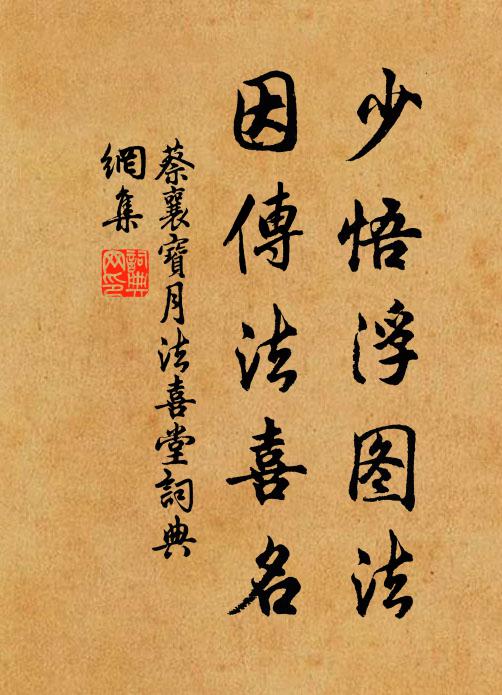 少悟浮图法
因傳法喜名
蔡襄寶月法喜堂詞典
網集
詞典网印